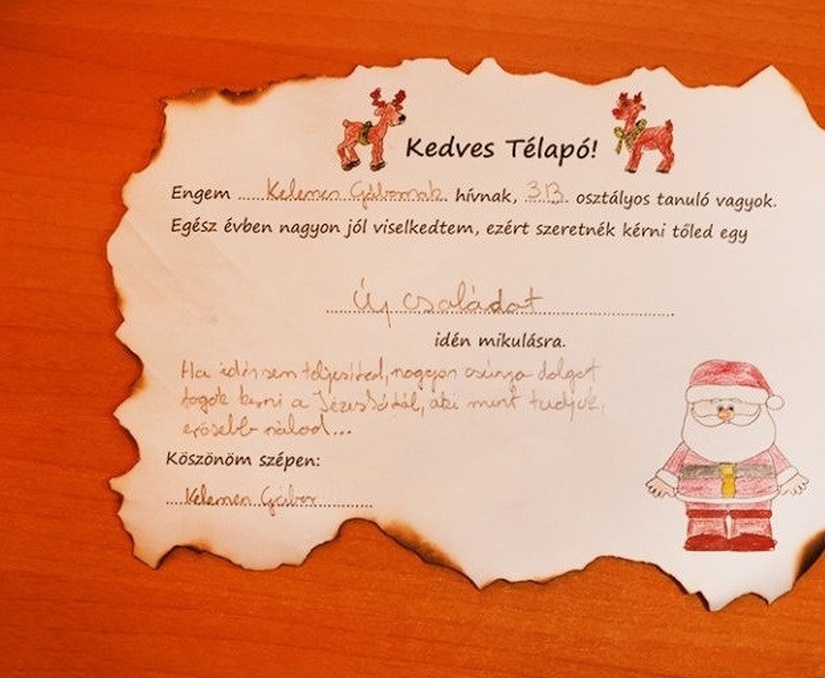 Kedves Télapó!
Engem Kelemen Gábornak hívnak, 3.B. osztályos tanuló vagyok.
Egész évben nagyon jól viselkedtem, ezért szeretnék kérni tőled egy
Új családot
idén mikulásra.
Ha idén sem teljesíted, nagyon csúnya dolgot
fogok kérni a Jézuskától, aki mint tudjuk,
erősebb nálad...
Köszönöm szépen:
Kelemen Gábor